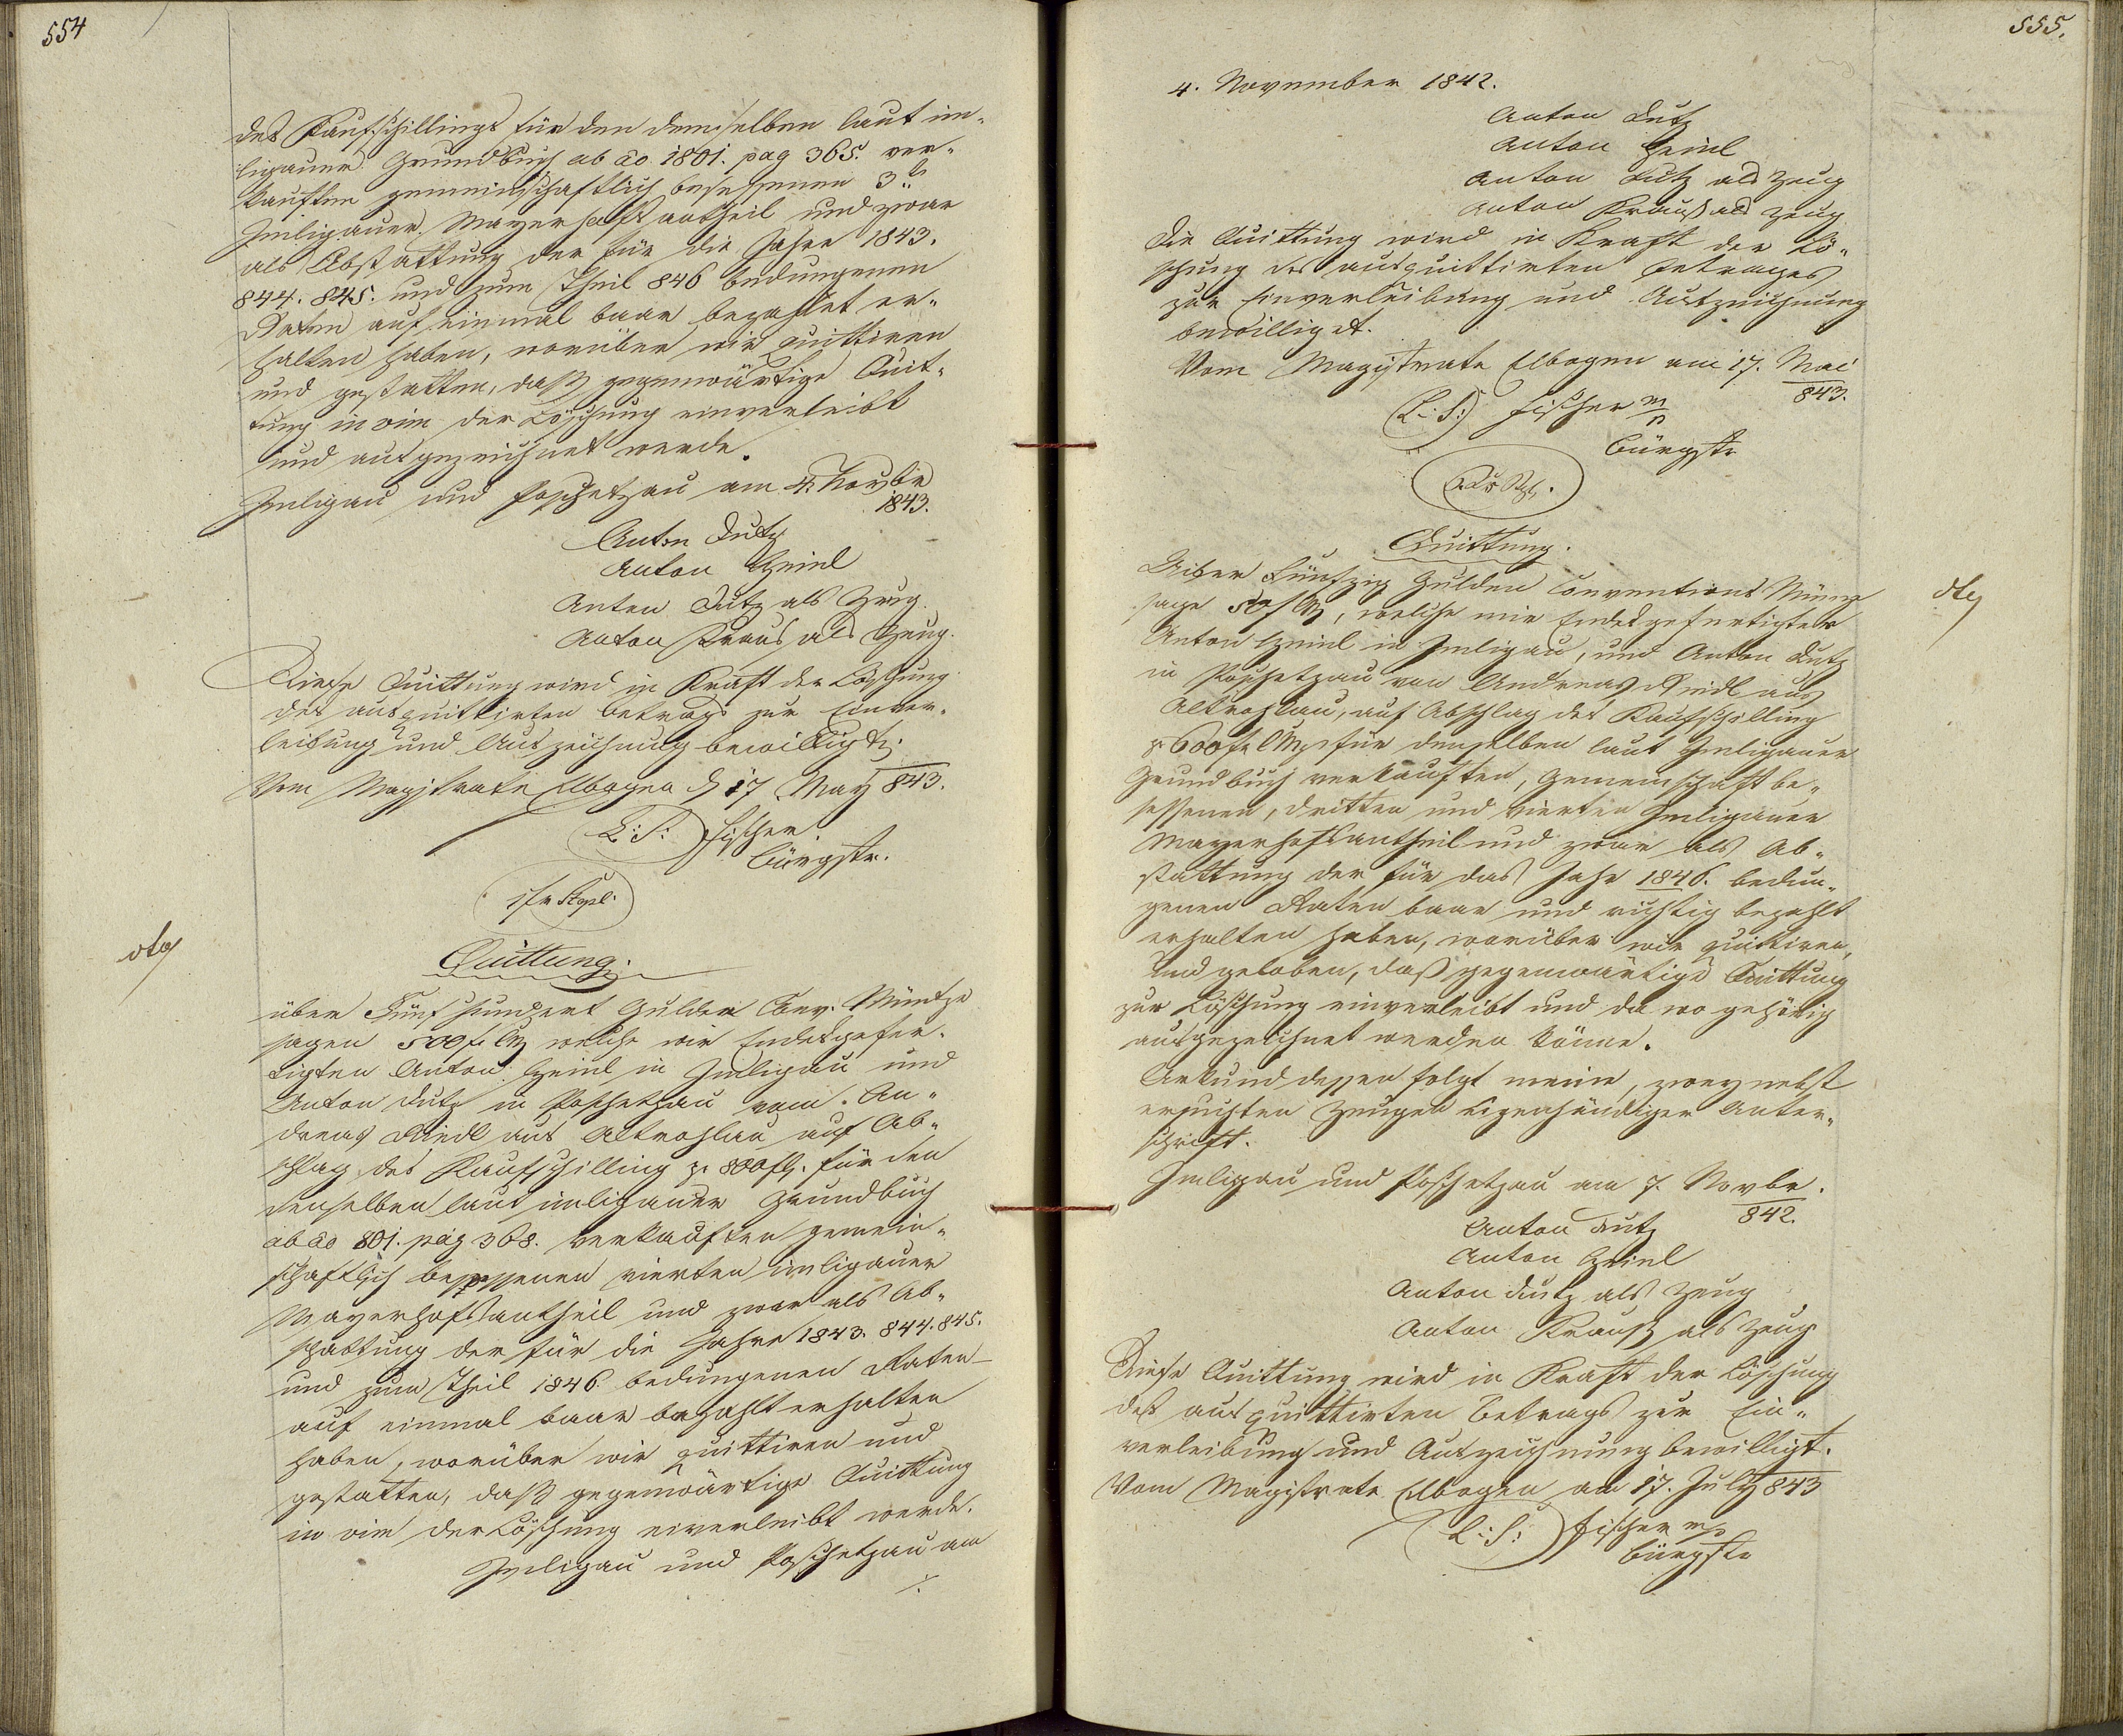 554
des Kaufschillings für den demselben laut im-
ligauer Grundbuch ab ao 1801. pag 365. ver-
kauften gemeinschaftlich besessenen 3.ten
Imligauer Mayerhofsantheil und zwar
als Abstattung der für die Jahre 1843.
844. 845. und zum Theil 846 bedungenen
Raten auf einmal baar bezahlt er-
halten haben, worüber wir quittiren
und gestatten, daß gegenwärtige Quit-
tung in vim der Löschung einverleibt
und ausgezeichnet werde.
Imligau und Poschetzau am 4. Novbr
1843.
Anton Lutz
Anton Heinl
Anton Lutz als Zeug
Anton Kraus als Zeug.
Diese Quittung wird in Kraft der Löschung
des ausquittirten Betrags zur Einver-
leibung und Auszeichnung bewilligt.
Vom Magistrate Elbogen d 17 May 843.
L: S: Fischer
Bürgstr.
Quittung.
über Fünf hundert Gulden Conv. Müntze
sagen 500 f CM welche wir Endesgefer-
tigten Anton Heinl in Imligau und
Anton Lutz in Poschetzau vom An-
dreas Riedl aus Altrohlau auf Ab-
schlag des Kaufschilling p. 800 fl. für den
denselben laut imligauer Grundbuch
ab ao 801. pag 368. verkauften gemein-
schaftlich besessenen vierten imligauer
Mayerhofsantheil und zwar als Ab-
stattung der für die Jahre 1843. 844. 845.
und zum Theil 1846. bedungenen Raten
auf einmal baar bezahlt erhalten
haben, worüber wir quittiren und
gestatten, daß gegenwärtige Quittung
in vim der Löschung eiverleibt werde.
Imligau und Poschetzau am
./.
555.
4. November 1842.
Anton Lutz
Anton Heinl
Anton Lutz als Zeug
Anton Krauß als Zeug
Die Quittung wird in Kraft der Lö-
schung des ausquittirten Betrages
zur Einverleibung und Auszeichnung
bewilliget.
Vom Magistrate Elbogen am 17. Mai
843.
(L: S:) Fischer m/p
Bürgstr
Quittung.
Uiber Fünfzig Gulden Conventions Münze
sage 50 f CM, welche wir Endesgefertigter
Anton Heinl in Imligau, und Anton Lutz
in Poschetzau von Andreas Riedl aus
Altrohlau, auf Abschlag des Kaufschilling
p 600 f CM für denselben laut Imligauer
Grundbuch verkauften, Gemeinschaft be-
sessenen, dritten und vierten Imligauer
Mayerhofsantheil und zwar als Ab-
stattung der für das Jahr 1846. bedun-
genen Raten baar und richtig bezahlt
erhalten haben, worüber wir quittiren,
und geloben, daß gegenwärtige Quittung
zur Löschung einverleibt und da wo gehörig
ausgezeichnet werden könne.
Urkund dessen folgt meine, zwey nebst
ersuchten Zeugen eigenhändiger Unter-
schrift.
Imligau und Poschetzau am 7. Novbr.
842.
Anton Lutz
Anton Heinl
Anton Lutz als Zeug
Anton Krauß als Zeug
Diese Quittung wird in Kraft der Löschung
deß ausquittirten Betrags zur Ein-
verleibung und Auszeichnung bewilligt.
Vom Magistrate Elbogen am 17. July 843
L: S: Fischer m/p
Bürgstr